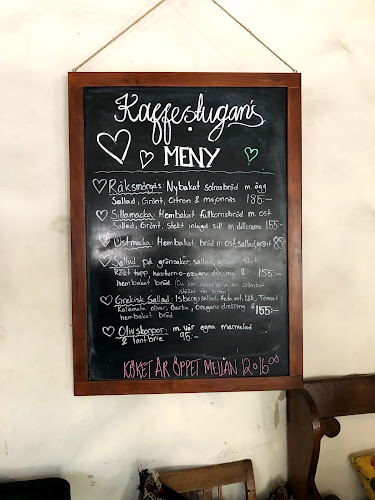 Kaffestugan's
MENY
Räksmörgås: Nybakat solrosbröd m. ägg
Sallad, Grönt, Citron & majonnäs 185:-
Sillamacka: Hembakat fullkornsbröd m ost
Sallad, Grönt, stekt inlagd sill m dillcreme 155:-
Ostmacka: Hembakt bröd m ost, sallad, grönt 85:-
Sallad på grönsaker, sallad,
Rökt topp, oregano dressing & 155:-
hembakat bröd
Grekisk Sallad: Isbergssallad, fetaost, lök, Tomat
Kalamata oliver, Gurka, Oregano dressing & 155:-
hembakat bröd
Olivskorpor: m. vår egna marmelad
& lantbrie 95:-
KÖKET ÄR ÖPPET MELLAN 12-16⁰⁰